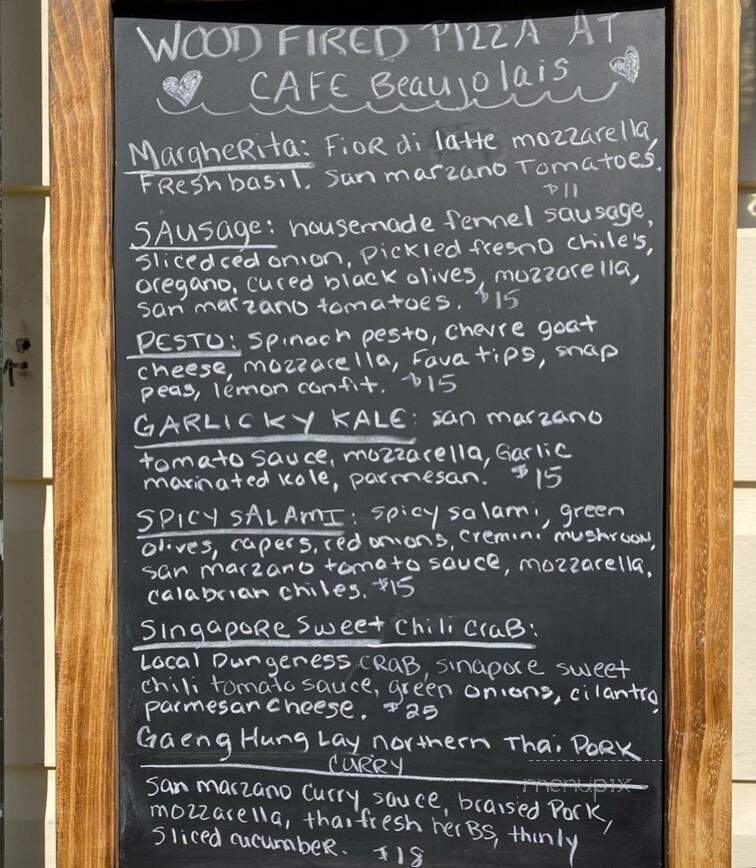 WOOD FIRED PIZZA AT
CAFE Beaujolais
Margherita: Fior di latte mozzarella,
Fresh basil. San marzano Tomatoes.
$11
SAusage: housemade fennel sausage,
slicedced onion, pickled fresno chile's,
oregano, cured black olives, mozzarella,
san marzano tomatoes. $15
PESTO: Spinach pesto, chevre goat
cheese, mozzarella, Fava tips, snap
peas, lemon confit. $15
GARLICKY KALE: san marzano
tomato sauce, mozzarella, Garlic
marinated kale, parmesan. $15
SPICY SALAMI: spicy salami, green
olives, capers, red onions, cremini mushroom,
san marzano tomato sauce, mozzarella,
calabrian chiles. $15
Singapore Sweet Chili Crab:
Local Dungeness CRAB, sinapore sweet
chili tomato sauce, green onions, cilantro,
parmesan cheese. $25
Gaeng Hung Lay northern Thai PORK
CURRY
San marzano curry sauce, braised Pork,
mozzarella, thai fresh herBS, thinly
sliced cucumber. $18
menupix